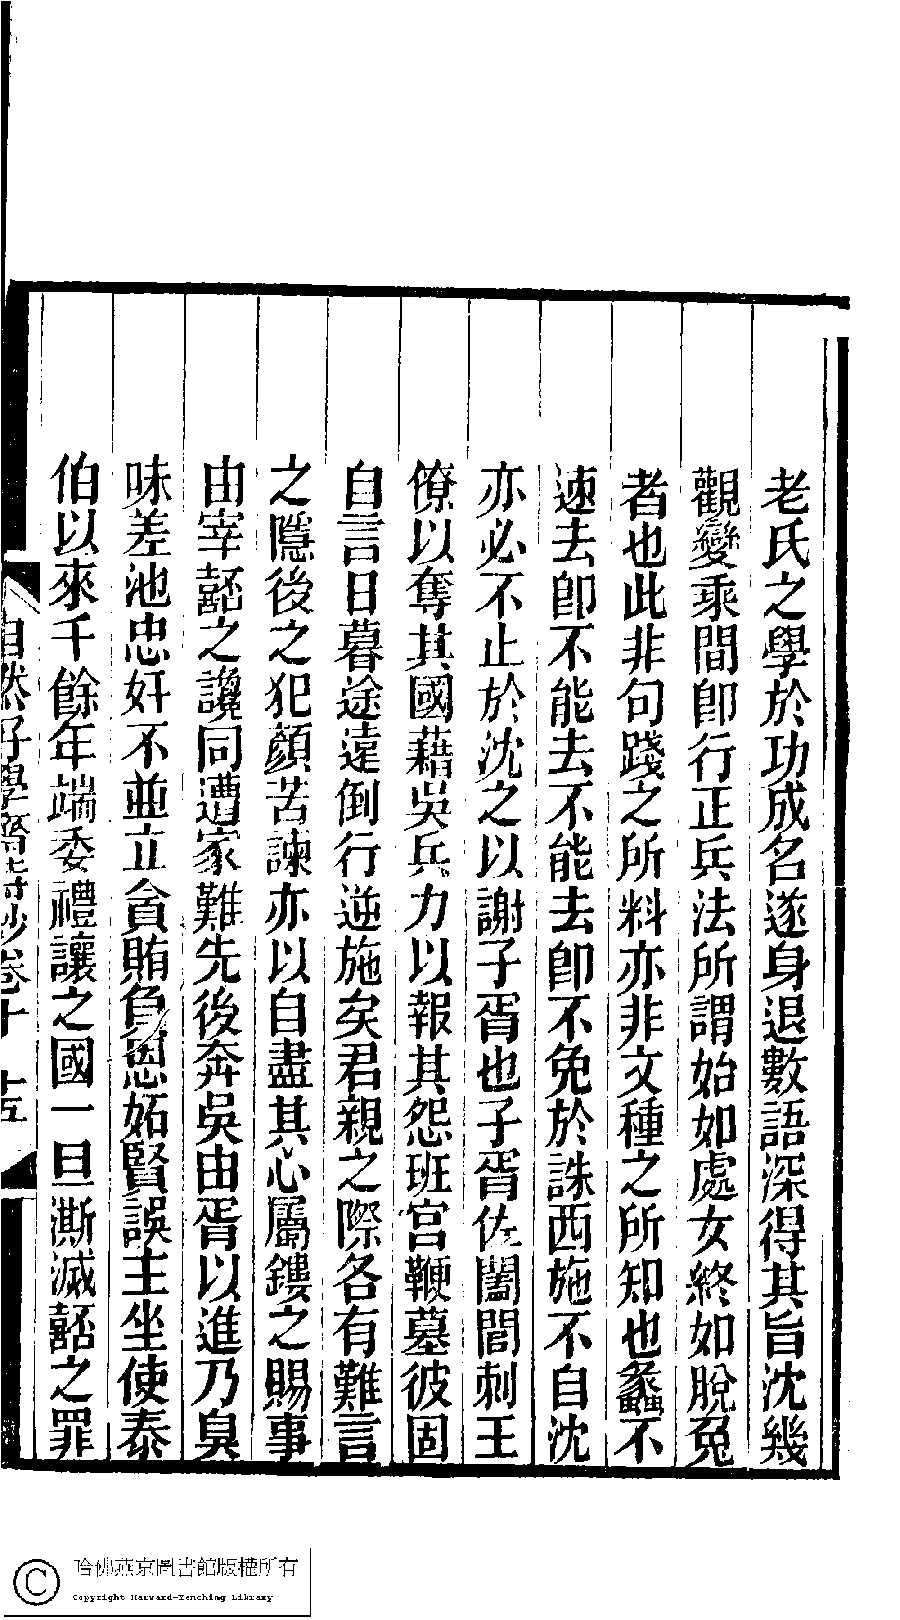 老氏之學於功成名遂身退數語深得其旨沈幾
觀變乘間卽行正兵法所謂始如處女終如脫兔
者也此非句踐之所料亦非文種之所知也蠡不
速去卽不能去不能去卽不免於誅西施不自沈
亦必不止於沈之以謝子胥也子胥佐闔閭刺王
僚以奪其國藉吳兵力以報其怨班宮鞭墓彼固
自言日暮途遠倒行逆施矣君親之際各有難言
之隱後之犯顏苦諫亦以自盡其心屬鏤之賜事
由宰嚭之讒同遭家難先後奔吳由胥以進乃臭
味差池忠奸不並立貪賄負恩妬賢誤主坐使泰
伯以來千餘年端委禮讓之國一旦澌滅嚭之罪
自然好學齋詩鈔卷十 十五
哈佛燕京圖書館版權所有
Copyright Harvard-Yenching Library